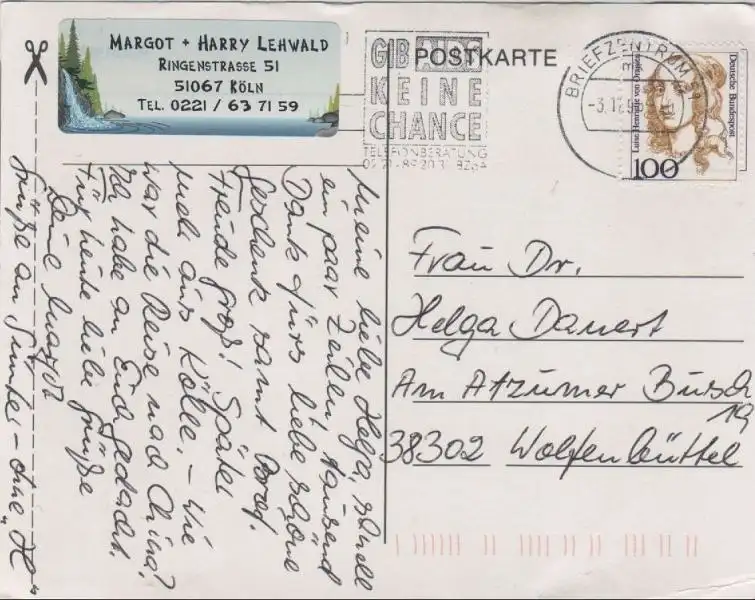 MARGOT + HARRY LEHWALD
RINGENSTRASSE 51
51067 KÖLN
TEL. 0221 / 63 71 59
GIB AIDS
KEINE
CHANCE
TELEFONBERATUNG
POSTKARTE
BRIEFZENTRUM
Deutsche Bundespost
100
Meine liebe Helga, schnell
ein paar Zeilen, tausend
Dank fürs liebe schöne
Geschenk samt Brief.
Freude groß! Später
mehr aus Kölle. – Wie
war die Reise nach China?
Ich habe an Euch gedacht.
Für heute liebe Grüße
Deine Margot
Grüße an Günter – ohne „H“
Frau Dr.
Helga Danert
Am Atzumer Busch
19
38302 Wolfenbüttel